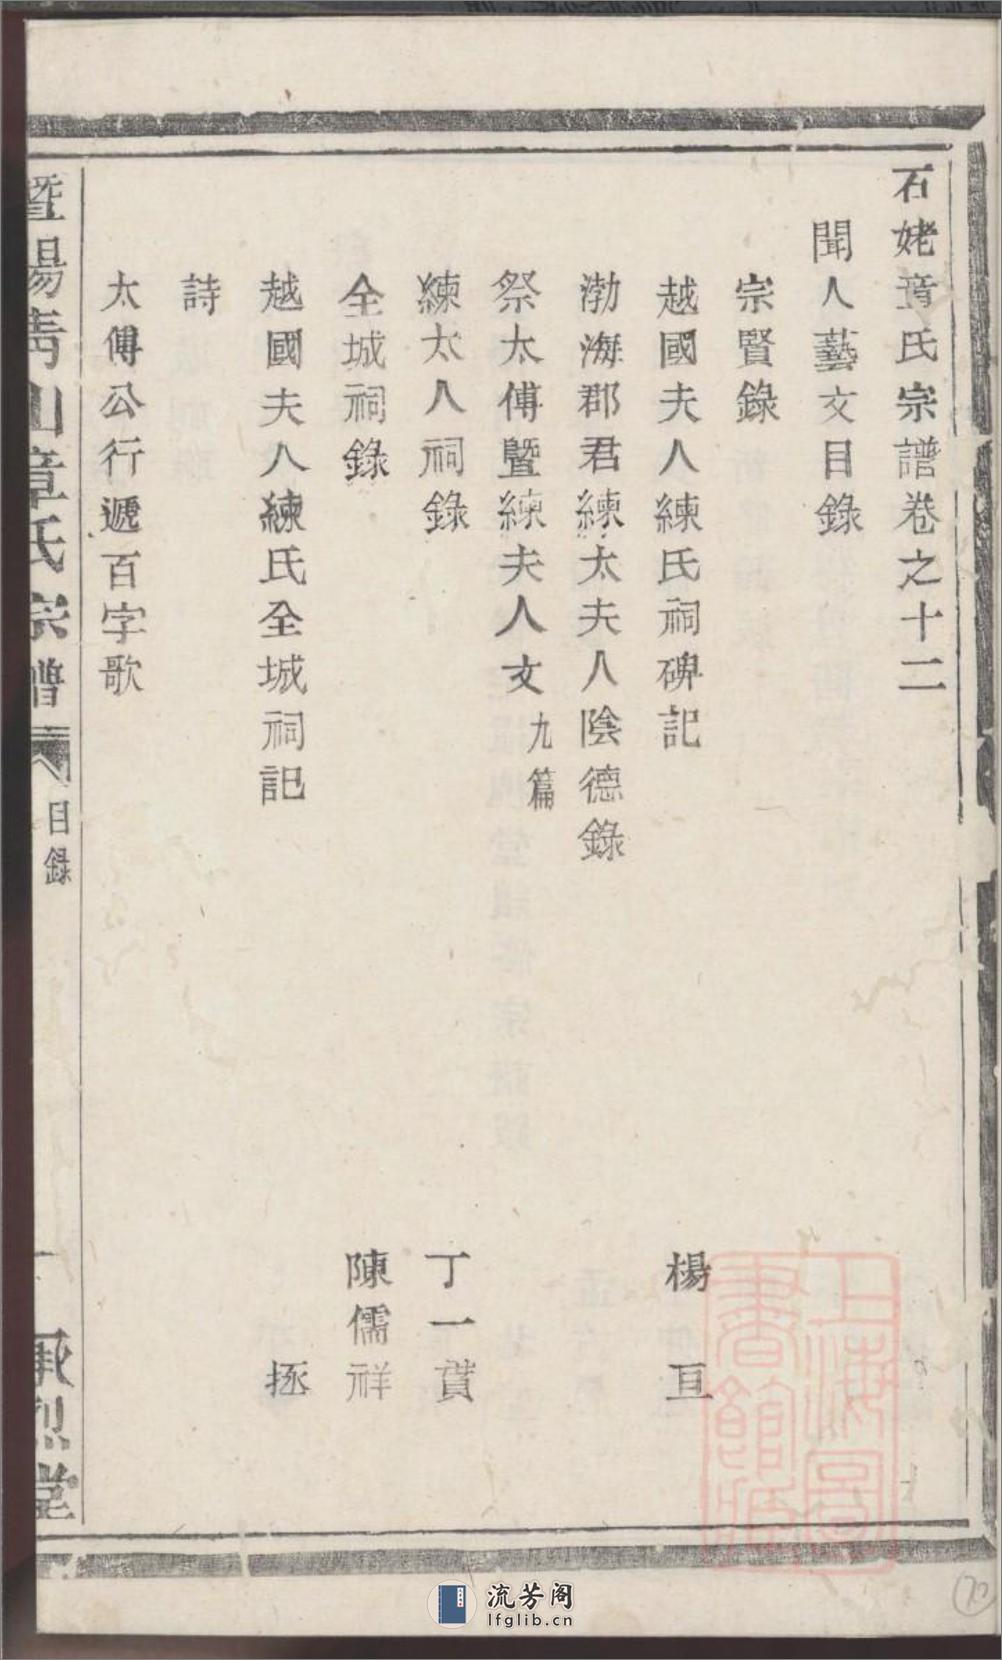 石姥章氏宗譜卷之十二
聞人藝文目錄
宗賢錄
越國夫人練氏祠碑記 楊亘
渤海郡君練太夫人陰德錄
祭太傅暨練夫人文九篇
練太人祠錄 丁一蕡
全城祠錄 陳儒祥
越國夫人練氏全城祠記 拯
詩
太傅公行遞百字歌
暨陽青山章氏宗譜 目錄 一 承烈堂
上海圖書館藏
流芳阁
lfglib.cn